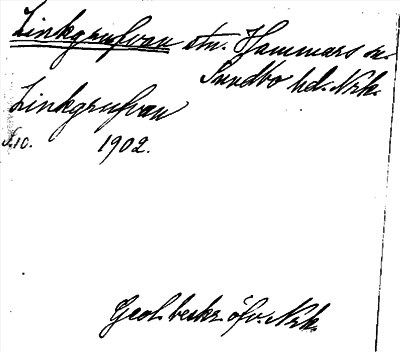 Zinkgrufvan stn. Hammars o.
Sundbo hd. Nrk.
Zinkgrufvan
S.10. 1902.
Geol. beskr. öfv. Nrk.